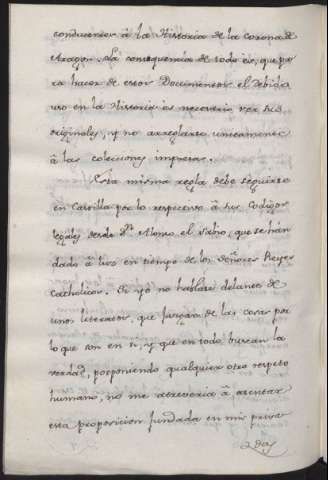 conducentes à la Historia de la corona de
Aragon. La consequencia de todo es, que pa
ra hacer de estos Documentos el debido
uso en la Historia es necesario ver sus
originales, y no arreglarse unicamente
à las colecciones impresas.
Esta misma regla debe seguirse
en Castilla por lo respectivo à sus Codigos
legales desde Dn. Alonso el Sabio, que se han
dado à luz en tiempo de los Señores Reyes
Catholicos. Si yo no hablase delante de
unos literatos, que juzgan de las cosas por
lo que son en si, y que en todo buscan la
verdad, posponiendo qualquier otro respeto
humano, no me atreveria à asentar
esta proposicion fundada en mis priva
das